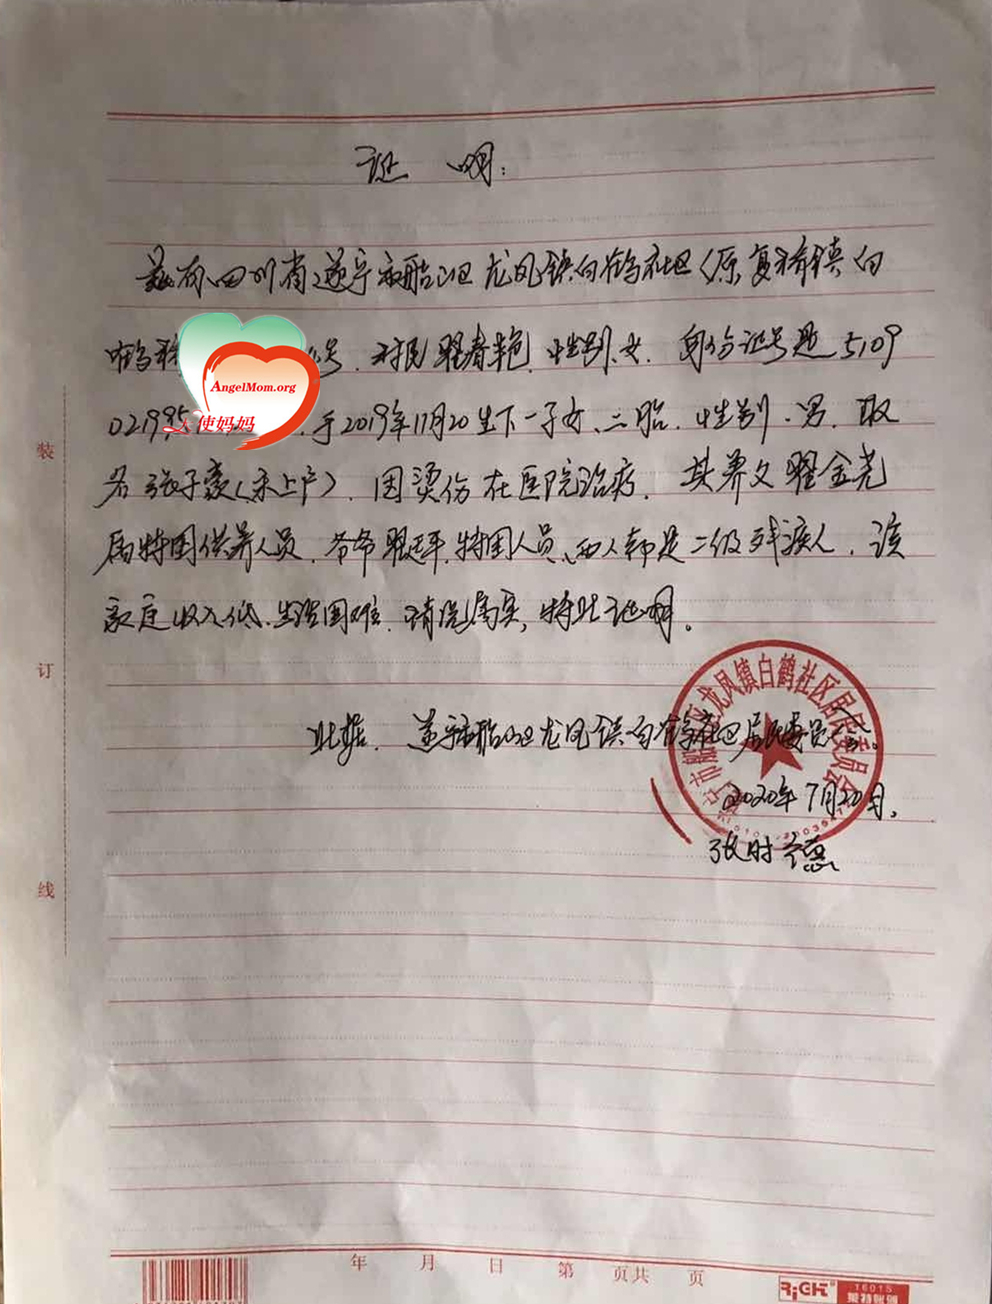 证 明:
兹有四川省遂宁市船山区龙凤镇白鹤社区(原复桥镇白
鹤 号.村民翟春艳.性别.女.身份证号是5109
021995 .于2019年11月20生下一子女、二胎.性别.男.取
名张子豪(未上户).因烫伤在医院治疗.其养父翟金尧
属特困供养人员.爷爷翟 特困人员、两人都是二级残疾人.该
家庭收入低.生活困难.情况属实,特此证明。
此据. 遂宁市船山区龙凤镇白鹤社区居民委员会。
2020年7月20日.
张时德
遂宁市船山区龙凤镇白鹤社区居民委员会
AngelMom.org
使妈妈
装
订
线
年 月 日 第 页共 页
RiGH
16015